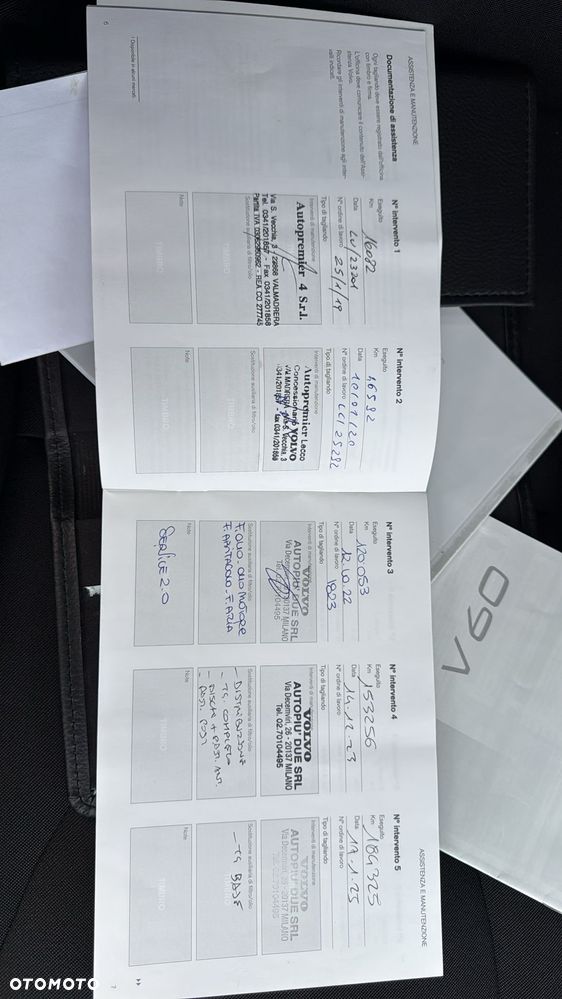 ASSISTENZA E MANUTENZIONE
Documentazione di assistenza
Ogni tagliando deve essere registrato dall'officina
con timbro e firma.
L'officina deve comunicare il contenuto dell'Assi-
stenza Volvo.
Ricordare gli interventi di manutenzione agli inter-
valli indicati.
1 Disponibile in alcuni mercati.
6
N° intervento 1
Eseguito
Km 16082
Data
N° ordine di lavoro 25/1/19
Tipo di tagliando
Interventi di manutenzione
Autopremier 4 S.r.l.
Via S. Vecchia, 3 - 23868 VALMADRERA
Tel. 0341/201857 - Fax 0341/201858
Sostituzione ausiliaria di filtro/olio
TIMBRO
Note
TIMBRO
N° intervento 2
Eseguito
Km 46592
Data
N° ordine di lavoro
Tipo di tagliando
Interventi di manutenzione
Autopremier Lecco
Concessionaria VOLVO
Sostituzione ausiliaria di filtro/olio
TIMBRO
Note
TIMBRO
N° intervento 3
Eseguito
Km 120053
Data 12.10.22
N° ordine di lavoro 1803
Tipo di tagliando
Interventi di manutenzione
VOLVO
AUTOPIU' DUE SRL
20137 MILANO
Sostituzione ausiliaria di filtro/olio
F. OLIO_OLIO MOTORE
F. ABITACOLO - F. ARIA
Note
SERVICE 2.0
ASSISTENZA E MANUTENZIONE
N° intervento 4
Eseguito
Km 153256
Data 14.12.23
N° ordine di lavoro
Tipo di tagliando
Interventi di manutenzione
VOLVO
AUTOPIU' DUE SRL
Via Decemviri, 26 - 20137 MILANO
Tel. 02.70104495
Sostituzione ausiliaria di filtro/olio
- DISTRIBUZIONE
- TG. COMPLETO
- DISCHI + PAST. ANT.
- PAST. POST
Note
TIMBRO
N° intervento 5
Eseguito
Km 189325
Data 17.1.25
N° ordine di lavoro
Tipo di tagliando
Interventi di manutenzione
VOLVO
AUTOPIU' DUE SRL
Via Decemviri, 26 - 20137 MILANO
Tel. 02.70104495
Sostituzione ausiliaria di filtro/olio
- TG BASE
TIMBRO
Note
TIMBRO
7
V60
OTOMOTO